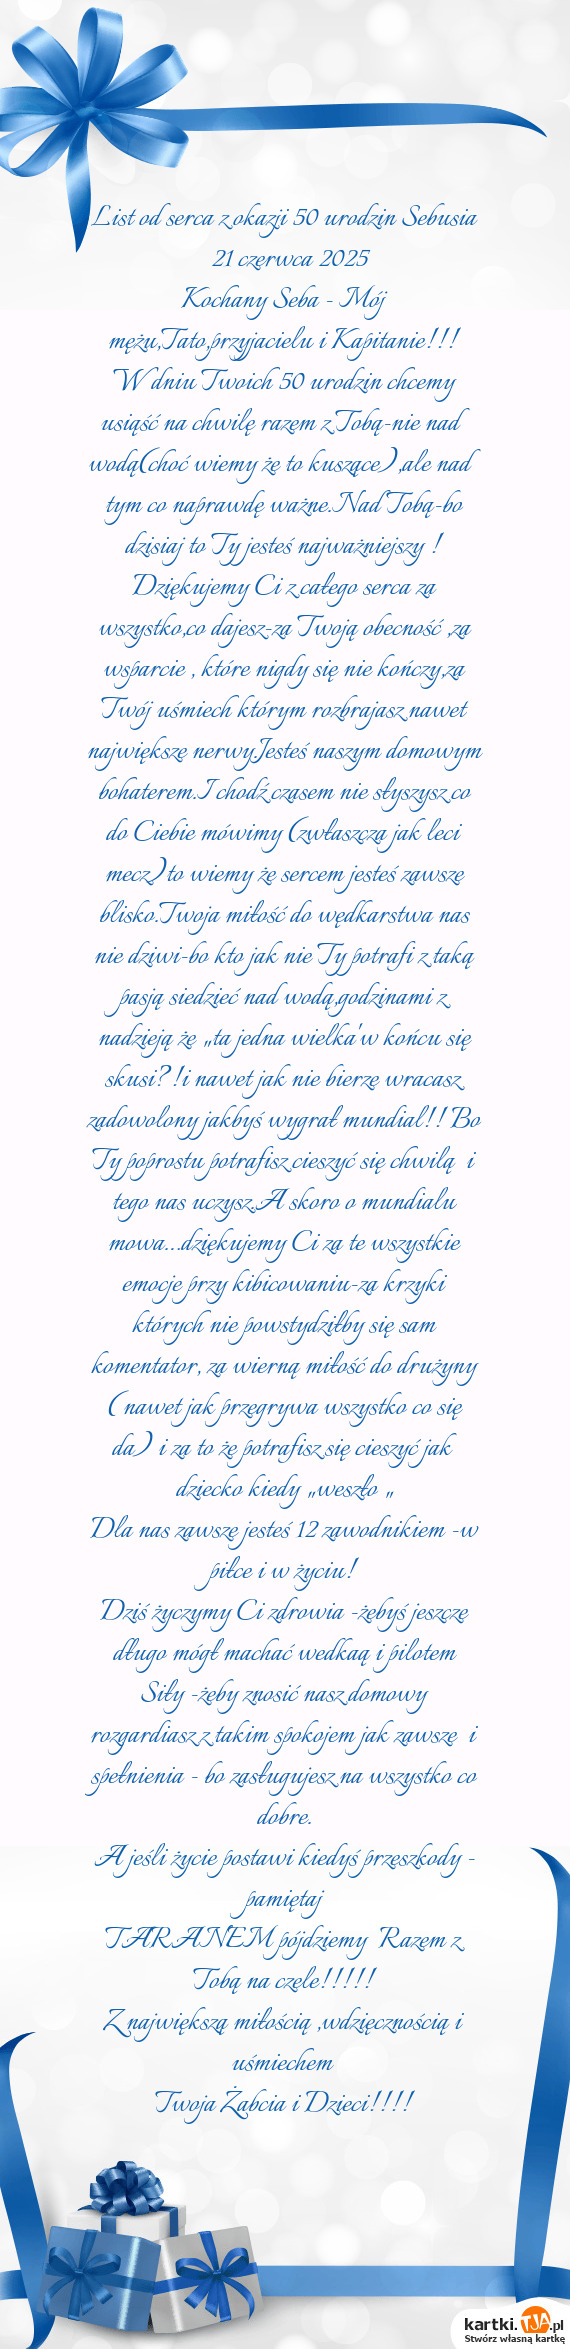 List od serca z okazji 50 urodzin Sebusia
21 czerwca 2025
Kochany Seba - Mój
mężu,Tato,przyjacielu i Kapitanie!!!
W dniu Twoich 50 urodzin chcemy
usiąść na chwilę razem z Tobą-nie nad
wodą(choć wiemy że to kuszące),ale nad
tym co naprawdę ważne.Nad Tobą-bo
dzisiaj to Ty jesteś najważniejszy !
Dziękujemy Ci z całego serca za
wszystko,co dajesz-za Twoją obecność ,za
wsparcie , które nigdy się nie kończy,za
Twój uśmiech którym rozbrajasz nawet
największe nerwy.Jesteś naszym domowym
bohaterem.I chodź czasem nie słyszysz co
do Ciebie mówimy (zwłaszcza jak leci
mecz)to wiemy że sercem jesteś zawsze
blisko.Twoja miłość do wędkarstwa nas
nie dziwi-bo kto jak nie Ty potrafi z taką
pasją siedzieć nad wodą,godzinami z
nadzieją że „ta jedna wielka'w końcu się
skusi?!i nawet jak nie bierze wracasz
zadowolony jakbyś wygrał mundial!! Bo
Ty poprostu potrafisz cieszyć się chwilą i
tego nas uczysz.A skoro o mundialu
mowa...dziękujemy Ci za te wszystkie
emocje przy kibicowaniu-za krzyki
których nie powstydziłby się sam
komentator, za wierną miłość do drużyny
( nawet jak przegrywa wszystko co się
da) i za to że potrafisz się cieszyć jak
dziecko kiedy „weszło „
Dla nas zawsze jesteś 12 zawodnikiem -w
piłce i w życiu!
Dziś życzymy Ci zdrowia -żebyś jeszcze
długo mógł machać wedkaą i pilotem
Siły -żeby znosić nasz domowy
rozgardiasz z takim spokojem jak zawsze i
spełnienia - bo zasługujesz na wszystko co
dobre.
A jeśli życie postawi kiedyś przeszkody -
pamiętaj
TARANEM pójdziemy Razem z
Tobą na czele!!!!!
Z największą miłością ,wdzięcznością i
uśmiechem
Twoja Żabcia i Dzieci!!!!
kartki.TJA.pl
Stwórz własną kartkę